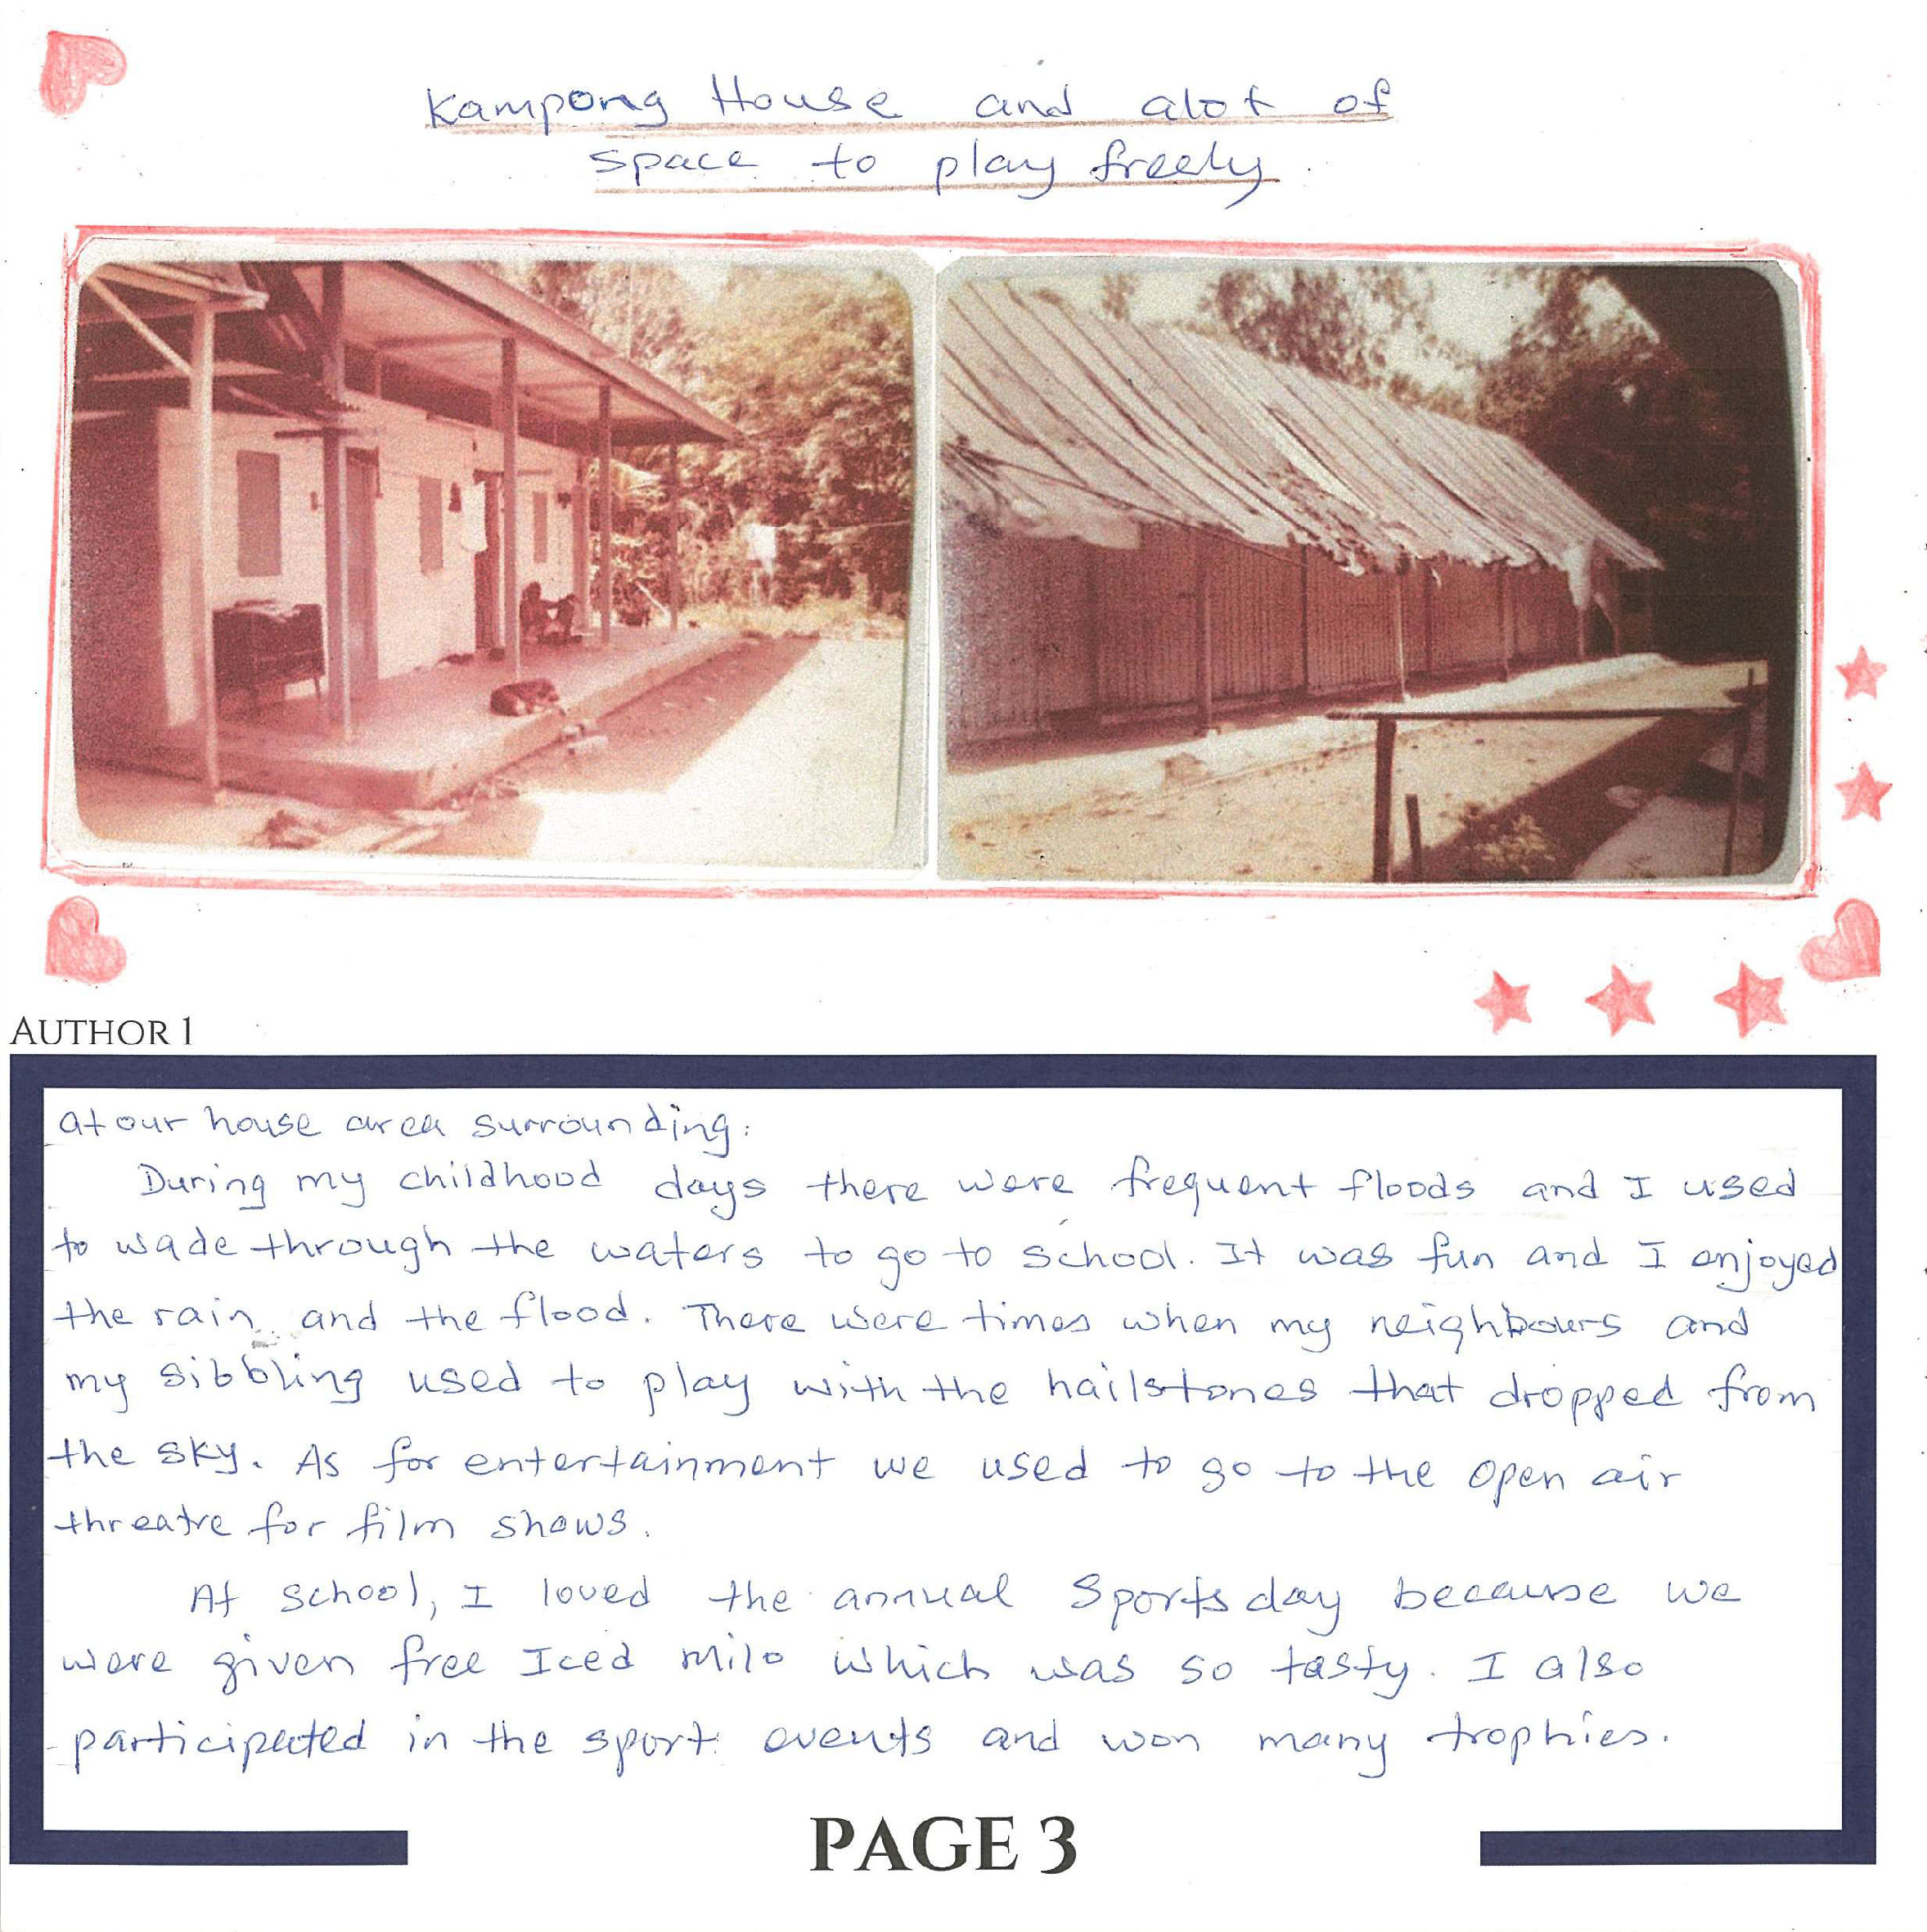 Kampong House and alot of
space to play freely.
AUTHOR 1
at our house area surrounding.
During my childhood days there were frequent floods and I used
to wade through the waters to go to school. It was fun and I enjoyed
the rain and the flood. There were times when my neighbours and
my sibbling used to play with the hailstones that dropped from
the sky. As for entertainment we used to go to the open air
threatre for film shows.
At school, I loved the annual Sports day because we
were given free Iced milo which was so tasty. I also
participated in the sport events and won many trophies.
PAGE 3